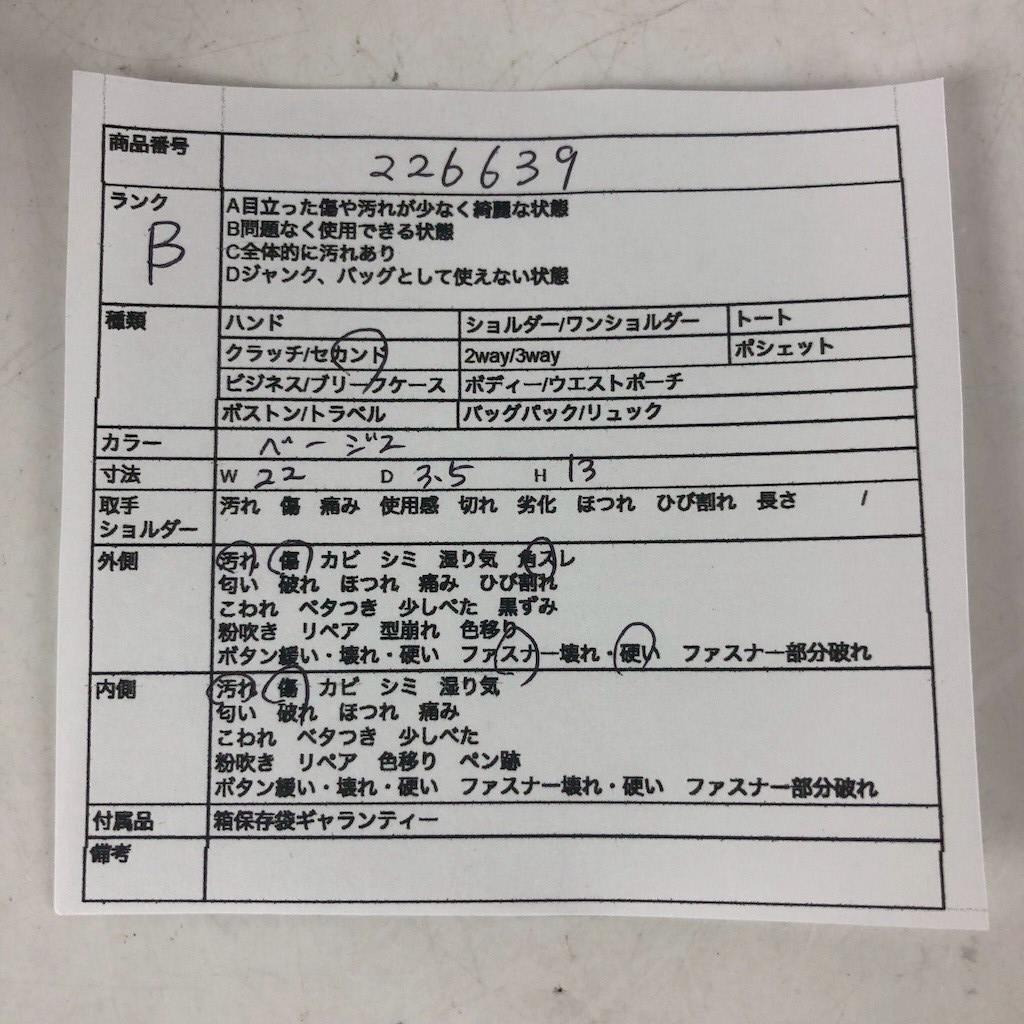 商品番号 226639
ランク B
A目立った傷や汚れが少なく綺麗な状態
B問題なく使用できる状態
C全体的に汚れあり
Dジャンク、バッグとして使えない状態
種類 ハンド ショルダー/ワンショルダー トート
クラッチ/セカンド 2way/3way ポシェット
ビジネス/ブリーフケース ボディー/ウエストポーチ
ボストン/トラベル バッグパック/リュック
カラー ベージュ
寸法 W 22 D 3.5 H 13
取手 汚れ 傷 痛み 使用感 切れ 劣化 ほつれ ひび割れ 長さ /
ショルダー
外側 汚れ 傷 カビ シミ 湿り気 角スレ
匂い 破れ ほつれ 痛み ひび割れ
こわれ ベタつき 少しべた 黒ずみ
粉吹き リペア 型崩れ 色移り
ボタン緩い・壊れ・硬い ファスナー壊れ・硬い ファスナー部分破れ
内側 汚れ 傷 カビ シミ 湿り気
匂い 破れ ほつれ 痛み
こわれ ベタつき 少しべた
粉吹き リペア 色移り ペン跡
ボタン緩い・壊れ・硬い ファスナー壊れ・硬い ファスナー部分破れ
付属品 箱保存袋ギャランティー
備考